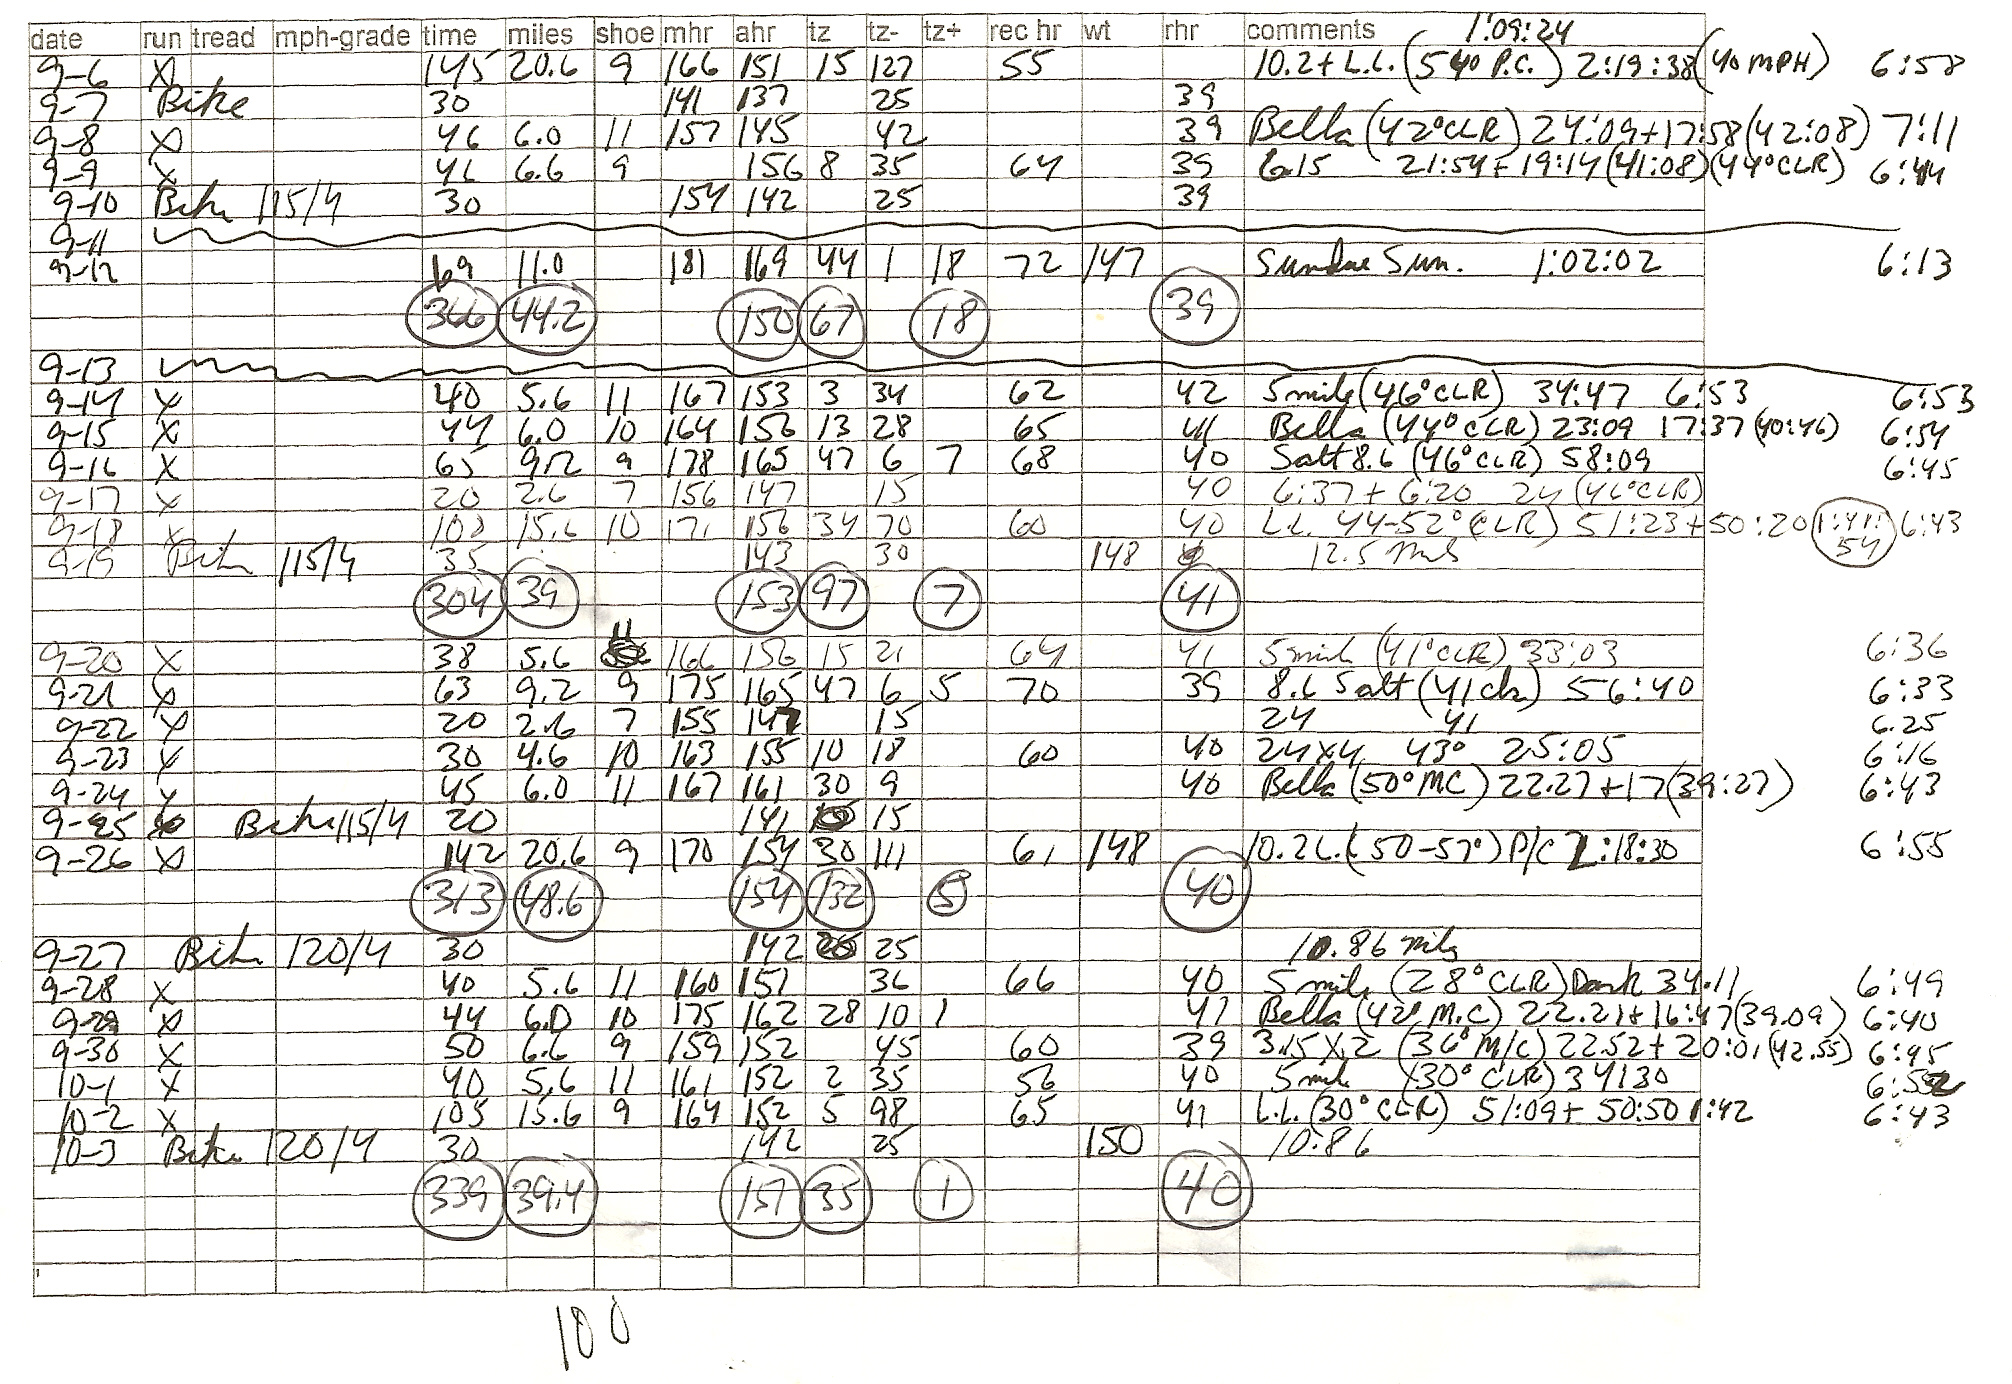 date run tread mph-grade time miles shoe mhr ahr tz tz- tz+ rec hr wt rhr comments 1:09:24
9-6 X 145 20.6 9 166 151 15 127 55 10.2+ L.L. (54° P.C.) 2:19:38 (40 MPH) 6:58
9-7 Bike 30 141 137 25 39
9-8 X 46 6.0 11 157 145 42 39 Bella (42° CLR) 24:09+17:58 (42:08) 7:11
9-9 X 46 6.6 9 156 8 35 64 39 6.15 21:54+19:14 (41:08) (44° CLR) 6:44
9-10 Bike 115/4 30 154 142 25 39
9-11
9-12 69 11.0 181 169 44 1 18 72 147 Sundae Sun. 1:02:02 6:13
366 44.2 150 67 18 39
9-13
9-14 X 40 5.6 11 167 153 3 34 62 42 5 mile (46° CLR) 34:47 6:53 6:53
9-15 X 44 6.0 10 164 156 13 28 65 41 Bella (44° CLR) 23:09 17:37 (40:46) 6:54
9-16 X 65 9.2 9 178 165 47 6 7 68 40 Salt 8.6 (46° CLR) 58:09 6:45
9-17 X 20 2.6 7 156 147 15 40 6:37+6:20 24 (46° CLR)
9-18 X 100 15.6 10 171 156 34 70 60 40 L.L. 44-52° (CLR) 51:23+50:20 1:41:54 6:43
9-19 Bike 115/4 35 143 30 148 12.5 miles
304 39 153 97 7 41
9-20 X 38 5.6 11 166 156 15 21 64 41 5 mile (41° CLR) 33:03 6:36
9-21 X 63 9.2 9 175 165 47 6 5 70 39 8.6 Salt (41 clr) 56:40 6:33
9-22 X 20 2.6 7 155 147 15 24 41 6.25
9-23 X 30 4.6 10 163 155 10 18 60 40 24x4 43° 25:05 6:16
9-24 X 45 6.0 11 167 161 30 9 40 Bella (50° MC) 22.27+17 (39:27) 6:43
9-25 Bike 115/4 20 141 15
9-26 X 142 20.6 9 170 154 30 111 61 148 10.2 L.L. (50-57°) P/C 2:18:30 6:55
313 48.6 154 132 5 40
9-27 Bike 120/4 30 142 25 10.86 miles
9-28 X 40 5.6 11 160 151 36 66 40 5 mile (28° CLR) Dark 34.11 6:49
9-29 X 44 6.0 10 175 162 28 10 1 41 Bella (42° M.C) 22.21+16:47 (39.09) 6:40
9-30 X 50 6.6 9 159 152 45 60 39 3.15 X 2 (36° M/C) 22.52+20:01 (42.55) 6:45
10-1 X 40 5.6 11 161 152 2 35 56 40 5 mile (30° CLR) 34:30 6:52
10-2 X 105 15.6 9 164 152 5 98 65 41 L.L. (30° CLR) 51:09+50:50 1:42 6:43
10-3 Bike 120/4 30 142 25 150 10.86
339 39.4 151 35 1 40
100